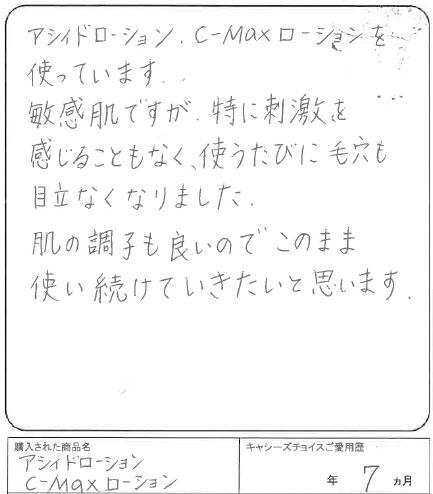 アシィドローション、C-Maxローションを
使っています。
敏感肌ですが、特に刺激を
感じることもなく、使うたびに毛穴も
目立なくなりました。
肌の調子も良いのでこのまま
使い続けていきたいと思います。
購入された商品名
アシィドローション
C-Maxローション
キャシーズチョイスご愛用歴
年 7 ヵ月